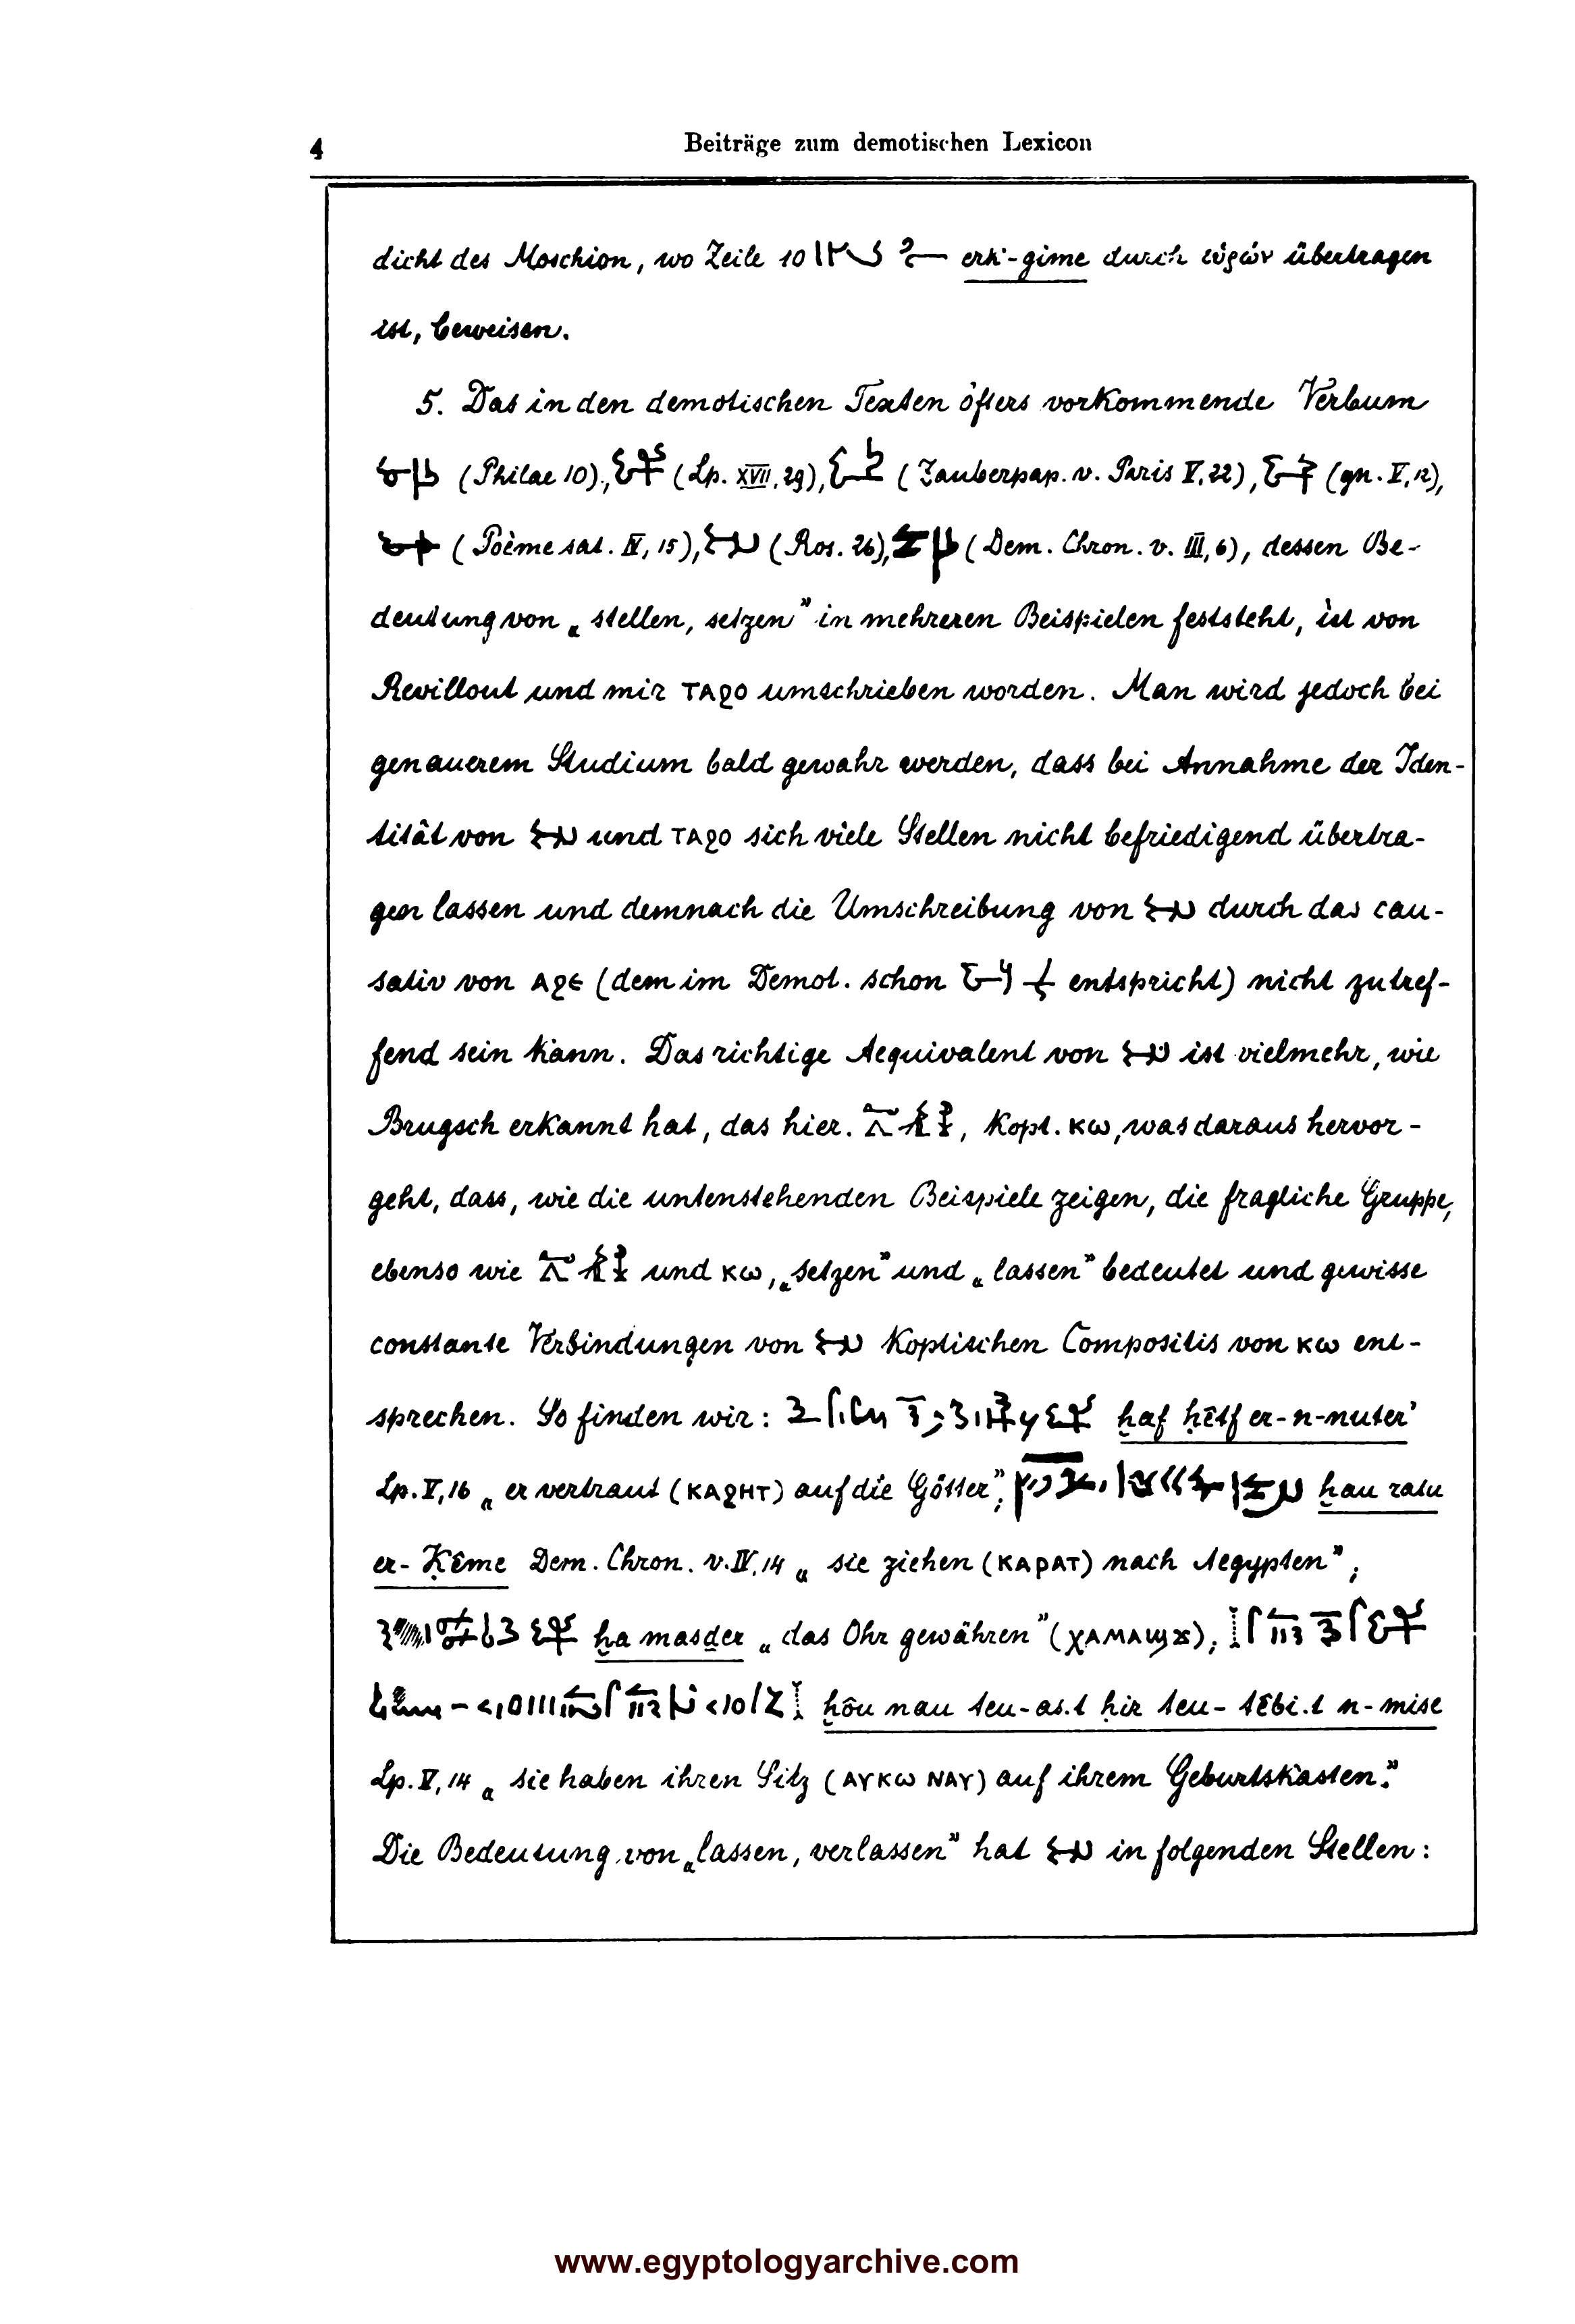 4 Beiträge zum demotischen Lexicon
dicht des Moschion, wo Zeile 10 erk'-gime durch εὑρών übertragen
ist, beweisen.
5. Das in den demotischen Texten öfters vorkommende Verbum
(Philae 10), (Lp. XVII, 29), (Zauberpap. v. Paris V, 22), (gn. V, 12),
(Poème sat. IV, 15), (Ros. 26), (Dem. Chron. v. III, 6), dessen Be-
deutung von „stellen, setzen” in mehreren Beispielen feststeht, ist von
Revillout und mir ⲧⲁϩⲟ umschrieben worden. Man wird jedoch bei
genauerem Studium bald gewahr werden, dass bei Annahme der Iden-
tität von und ⲧⲁϩⲟ sich viele Stellen nicht befriedigend übertra-
gen lassen und demnach die Umschreibung von durch das cau-
sativ von ⲁϩⲉ (dem im Demot. schon entspricht) nicht zutref-
fend sein kann. Das richtige Aequivalent von ist vielmehr, wie
Brugsch erkannt hat, das hier. , kopt. ⲕⲱ, was daraus hervor-
geht, dass, wie die untenstehenden Beispiele zeigen, die fragliche Gruppe,
ebenso wie und ⲕⲱ, „setzen” und „lassen” bedeutet und gewisse
constante Verbindungen von koptischen Compositis von ⲕⲱ ent-
sprechen. So finden wir: ḫaf ḥêtf er-n-nuter'
Lp. V, 16 „er vertraut (ⲕⲁϩⲏⲧ) auf die Götter”; ḫau ratu
er-Ḳême Dem. Chron. v. IV, 14 „sie ziehen (ⲕⲁⲣⲁⲧ) nach Aegypten”;
ḫa masḏer „das Ohr gewähren” (ⲭⲁⲙⲁϣϫ);
ḫôu nau teu-as.t ḥir teu-têbi.t n-mise
Lp. V, 14 „sie haben ihren Sitz (ⲁⲩⲕⲱ ⲛⲁⲩ) auf ihrem Geburtskasten.”
Die Bedeutung von „lassen, verlassen” hat in folgenden Stellen:
www.egyptologyarchive.com